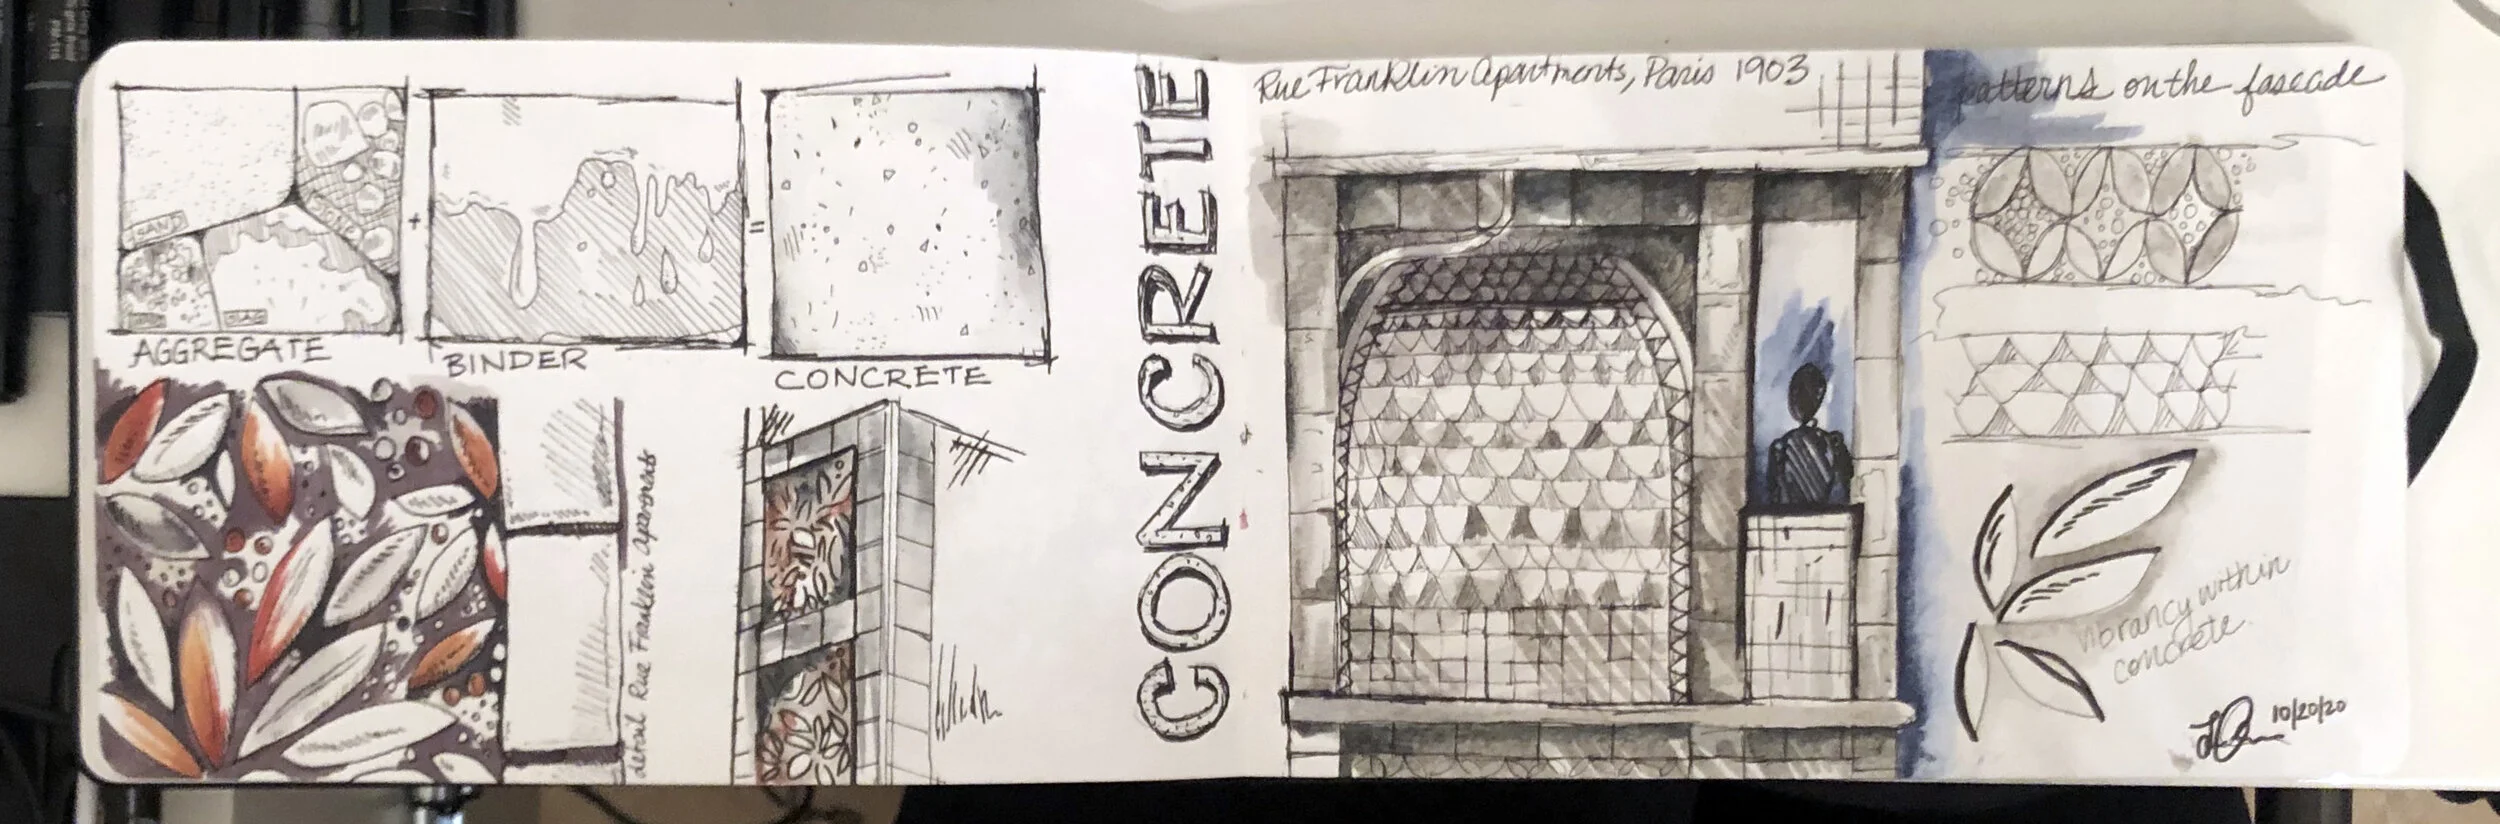 SAND
SLAG
AGGREGATE
+
BINDER
=
CONCRETE
detail Rue Franklin Apartments
CONCRETE
Rue Franklin Apartments, Paris 1903
patterns on the fascade
vibrancy within
concrete.
10/20/20